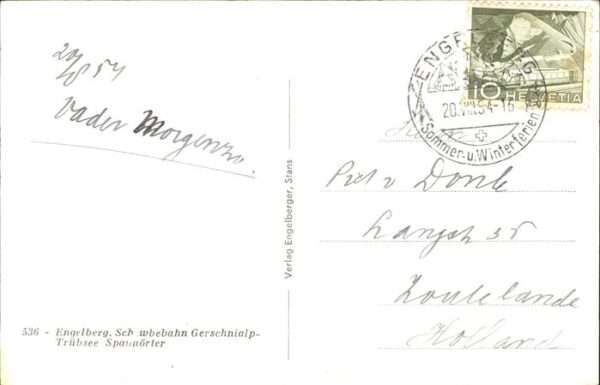 20/8 54
Vader Morgenzo.
536 - Engelberg. Sch wbebahn Gerschnialp-
Trübsee Spannörter
Verlag Engelberger, Stans
ENGELBERG
20.VIII.54-16
Sommer- u. Winterferien
10 HELVETIA
Piet v Donk
Langst 35
Zoutelande
Holland